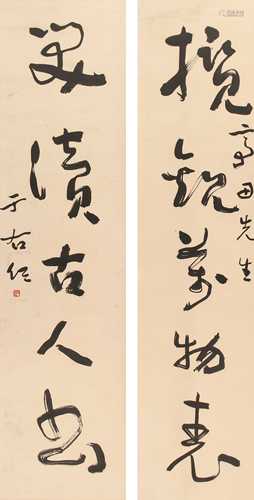 攬觀萬物表
田先生
讀古人書
于右任